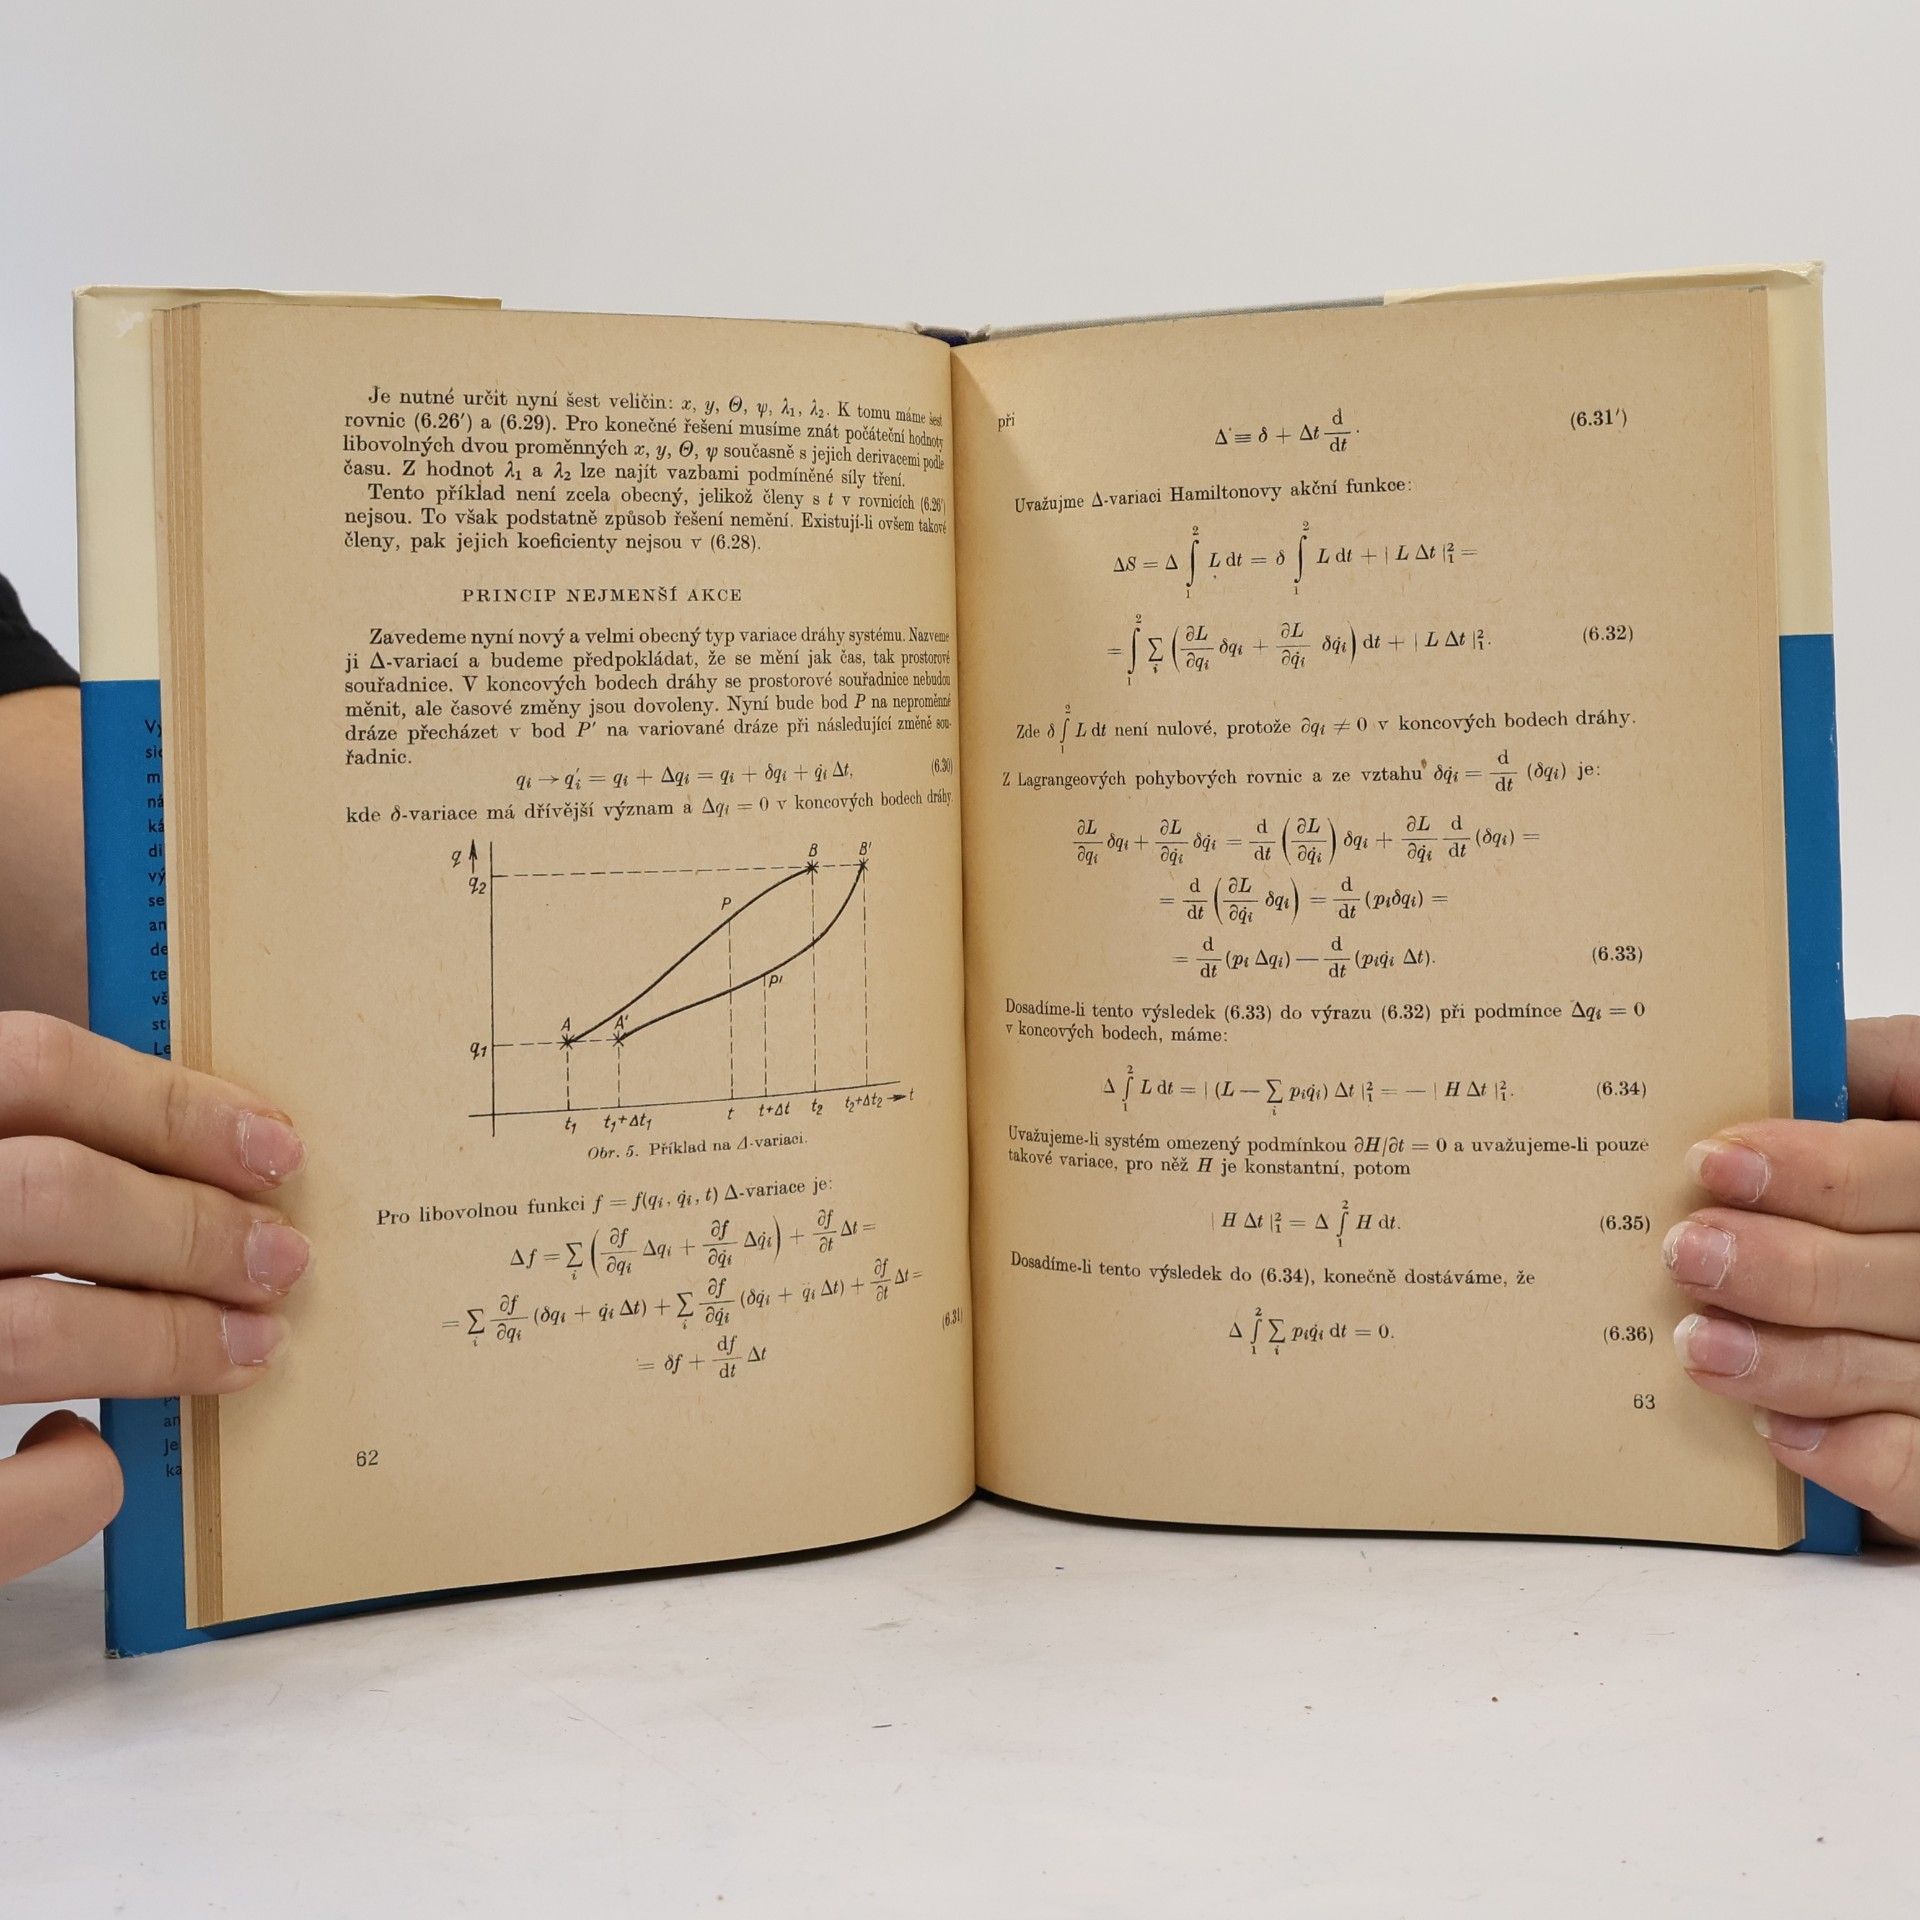 Je nutné určit nyní šest veličin: x, y, Θ, ψ, λ₁, λ₂. K tomu máme šest
rovnic (6.26′) a (6.29). Pro konečné řešení musíme znát počáteční hodnoty
libovolných dvou proměnných x, y, Θ, ψ současně s jejich derivacemi podle
času. Z hodnot λ₁ a λ₂ lze najít vazbami podmíněné síly tření.
Tento příklad není zcela obecný, jelikož členy s t v rovnicích (6.26′)
nejsou. To však podstatně způsob řešení nemění. Existují-li ovšem takové
členy, pak jejich koeficienty nejsou v (6.28).
PRINCIP NEJMENŠÍ AKCE
Zavedeme nyní nový a velmi obecný typ variace dráhy systému. Nazveme
ji Δ-variací a budeme předpokládat, že se mění jak čas, tak prostorové
souřadnice. V koncových bodech dráhy se prostorové souřadnice nebudou
měnit, ale časové změny jsou dovoleny. Nyní bude bod P na neproměnné
dráze přecházet v bod P′ na variované dráze při následující změně sou-
řadnic.
qᵢ → q′ᵢ = qᵢ + Δqᵢ = qᵢ + δqᵢ + q̇ᵢ Δt, (6.30)
kde δ-variace má dřívější význam a Δqᵢ = 0 v koncových bodech dráhy.
q
q₂
B B′
P
P′
A A′
q₁
t₁ t₁+Δt₁ t t+Δt t₂ t₂+Δt₂ t
Obr. 5. Příklad na Δ-variaci.
Pro libovolnou funkci f = f(qᵢ, q̇ᵢ, t) Δ-variace je:
Δf = ∑ᵢ (∂f/∂qᵢ Δqᵢ + ∂f/∂q̇ᵢ Δq̇ᵢ) + ∂f/∂t Δt =
= ∑ᵢ ∂f/∂qᵢ (δqᵢ + q̇ᵢ Δt) + ∑ᵢ ∂f/∂q̇ᵢ (δq̇ᵢ + q̈ᵢ Δt) + ∂f/∂t Δt =
(6.31)
= δf + df/dt Δt
62
při
Δ ≡ δ + Δt d/dt. (6.31′)
Uvažujme Δ-variaci Hamiltonovy akční funkce:
ΔS = Δ ∫₁² L dt = δ ∫₁² L dt + | L Δt |₁² =
= ∫₁² ∑ᵢ (∂L/∂qᵢ δqᵢ + ∂L/∂q̇ᵢ δq̇ᵢ) dt + | L Δt |₁². (6.32)
Zde δ ∫₁² L dt není nulové, protože ∂qᵢ ≠ 0 v koncových bodech dráhy.
Z Lagrangeových pohybových rovnic a ze vztahu δq̇ᵢ = d/dt (δqᵢ) je:
∂L/∂qᵢ δqᵢ + ∂L/∂q̇ᵢ δq̇ᵢ = d/dt (∂L/∂q̇ᵢ) δqᵢ + ∂L/∂q̇ᵢ d/dt (δqᵢ) =
= d/dt (∂L/∂q̇ᵢ δqᵢ) = d/dt (pᵢδqᵢ) =
= d/dt (pᵢ Δqᵢ) — d/dt (pᵢq̇ᵢ Δt). (6.33)
Dosadíme-li tento výsledek (6.33) do výrazu (6.32) při podmínce Δqᵢ = 0
v koncových bodech, máme:
Δ ∫₁² L dt = | (L — ∑ᵢ pᵢq̇ᵢ) Δt |₁² = — | H Δt |₁². (6.34)
Uvažujeme-li systém omezený podmínkou ∂H/∂t = 0 a uvažujeme-li pouze
takové variace, pro něž H je konstantní, potom
| H Δt |₁² = Δ ∫₁² H dt. (6.35)
Dosadíme-li tento výsledek do (6.34), konečně dostáváme, že
Δ ∫₁² ∑ᵢ pᵢq̇ᵢ dt = 0. (6.36)
63